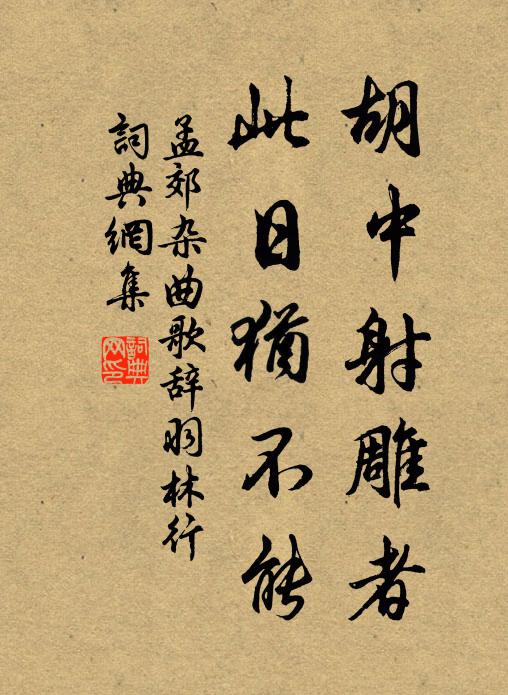 胡中射雕者
此日猶不能
孟郊杂曲歌辞羽林行
詞典網集
詞典网印